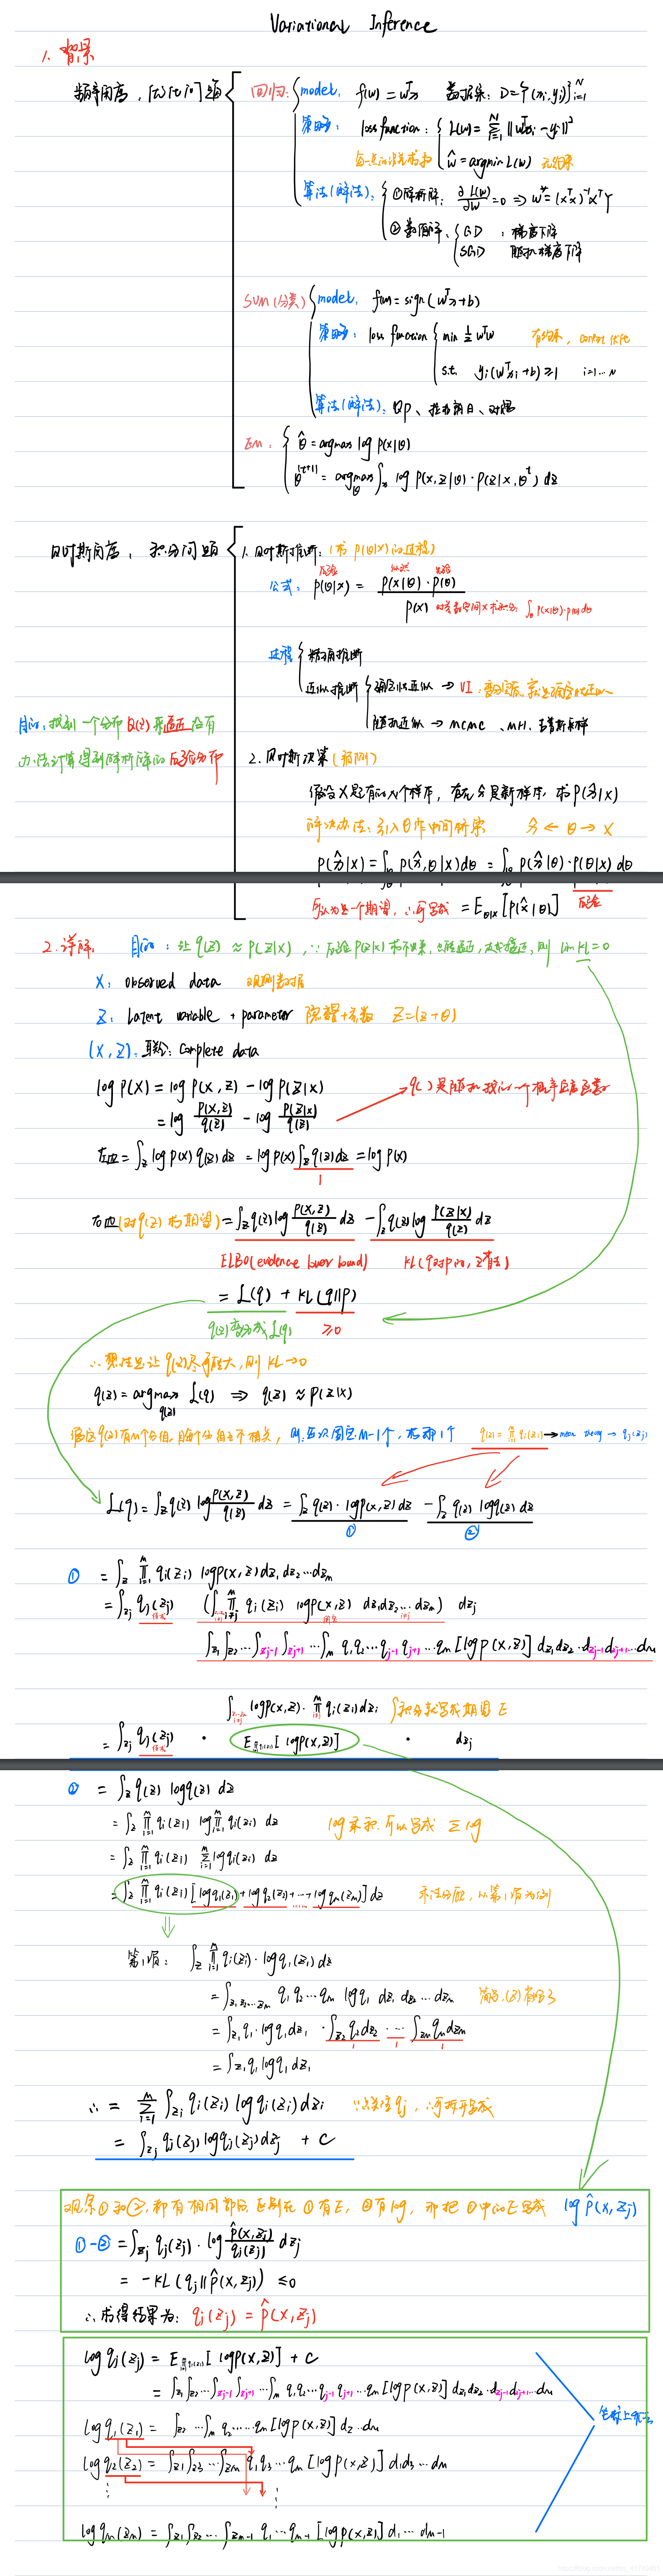 Variational Inference
1. 背景
频率角度,优化问题
回归: model: f(w) = wᵀx 数据集: D = {(xi, yi)}ᵢ₌₁ᴺ
策略: loss function: L(w) = Σᵢ₌₁ᴺ ||wᵀxi - yi||²
ŵ = argmin L(w) 无约束
算法(解法): ①解析解: ∂L(w)/∂w = 0 ⇒ w* = (xᵀx)⁻¹xᵀY
②数值解: GD : 梯度下降
SGD 随机梯度下降
SVM(分类) model: f(w) = sign(wᵀx+b)
策略: loss function min ½ wᵀw 有约束,
s.t. yi(wᵀxi+b) ≥ 1 i=1…N
算法(解法): QP、拉格朗日、对偶
EM: θ̂ = argmax log p(x|θ)
θ⁽ᵗ⁺¹⁾ = argmax_θ ∫z log p(x,z|θ)·p(z|x,θᵗ) dz
贝叶斯角度,积分问题
1. 贝叶斯推断: (求 p(θ|x) 的过程)
后验 似然 先验
公式: p(θ|x) = p(x|θ)·p(θ) / p(x) ∫θ p(x|θ)·p(θ)dθ
过程 精确推断
近似推断 确定性近似 → VI
随机近似 → MCMC、MH、吉布斯采样
目的: 找到一个分布 q(z) 来逼近没有
办法计算得到解析解的后验分布
2. 贝叶斯决策(预测)
假设X是已有的N个样本,有x̂是新样本,求 p(x̂|X)
解决办法: 引入θ作中间桥梁 x̂ ← θ → X
p(x̂|X) = ∫θ p(x̂,θ|x)dθ = ∫θ p(x̂|θ)·p(θ|x) dθ
可认为是一个期望,∴可写成 = E_θ|x[p(x̂|θ)] 后验
2. 详解: 目的: 让 q(z) ≈ p(z|x)
X: observed data 观测数据
Z: latent variable + parameter 隐变量+参数 Z=(z+θ)
(X,Z): complete data
log p(x) = log p(x,z) - log p(z|x)
= log p(x,z)/q(z) - log p(z|x)/q(z)
左边 = ∫z log p(x) q(z) dz = log p(x) ∫z q(z) dz = log p(x)
1
右边(对q(z)求期望) = ∫z q(z) log p(x,z)/q(z) dz - ∫z q(z) log p(z|x)/q(z) dz
ELBO(evidence lower bound)
= L(q) + KL(q||p)
≥0
∴ 想让q(z)尽可能大,则 KL→0
q(z) = argmax_q(z) L(q) ⇒ q(z) ≈ p(z|x)
q(z) = Πᵢ₌₁ᴹ qi(zi) → mean theory → qj(zj)
L(q) = ∫z q(z) log p(x,z)/q(z) dz = ∫z q(z)·log p(x,z) dz - ∫z q(z) log q(z) dz
① ②
① = ∫z Πᵢ₌₁ᴹ qi(zi) log p(x,z) dz₁ dz₂…dzm
= ∫zj qj(zj) (∫ Π qi(zi) log p(x,z) dz₁dz₂…dzm) dzj
∫z₁∫z₂…∫zj-1∫zj+1…∫m q₁q₂…qj-1 qj+1…qm [log p(x,z)] dz₁dz₂…dzj-1dzj+1…dm
∫ log p(x,z)·Π qi(zi)dzi 积分就写成期望 E
= ∫zj qj(zj) · E[log p(x,z)] · dzj
② = ∫z q(z) log q(z) dz
= ∫z Πᵢ₌₁ᴹ qi(zi) log Πᵢ₌₁ᴹ qi(zi) dz log 乘积,所以写成 Σ log
= ∫z Πᵢ₌₁ᴹ qi(zi) Σᵢ₌₁ᴹ log qi(zi) dz
= ∫z Πᵢ₌₁ᴹ qi(zi) [log q₁(z₁) + log q₂(z₂) + … + log qm(zm)] dz 以第1项为例
第1项: ∫z Πᵢ₌₁ᴹ qi(zi)·log q₁(z₁) dz
= ∫z₁,z₂…zm q₁q₂…qm log q₁ dz₁ dz₂…dzm
= ∫z₁ q₁·log q₁ dz₁ · ∫z₂ q₂ dz₂ … ∫zm qm dzm
1 1 1
= ∫z₁ q₁ log q₁ dz₁
∴ = Σᵢ₌₁ᴹ ∫zi qi(zi) log qi(zi) dzi 只关注qj,∴可拆开写成
= ∫zj qj(zj) log qj(zj) dzj + C
观察①和②,都有相同部分,区别在①有E,②有log,那把①中的E写成 log p̂(x,zj)
①-② = ∫zj qj(zj)·log p̂(x,zj)/qj(zj) dzj
= -KL(qj||p̂(x,zj)) ≤ 0
∴ 求得结果为: qj(zj) = p̂(x,zj)
log qj(zj) = E[log p(x,z)] + C
= ∫z₁∫z₂…∫zj-1∫zj+1…∫m q₁q₂…qj-1 qj+1…qm [log p(x,z)] dz₁dz₂…dzj-1dzj+1…dm
log q₁(z₁) = ∫z₂…∫m q₂…qm [log p(x,z)] dz…dm
log q₂(z₂) = ∫z₁∫z₃…∫zm q₁q₃…qm [log p(x,z)] d₁d₃…dm
log qm(zm) = ∫z₁∫z₂…∫zm-1 q₁…qm-1 [log p(x,z)] d₁…dm-1
坐标上升法